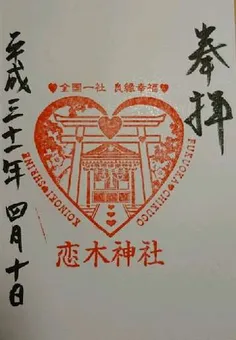 奉拝
♥全国一社 良縁幸福♥
KOINOKI♥SHRINE
FUKUOKA♥CHIKUGO
恋木神社
平成三十一年四月十日